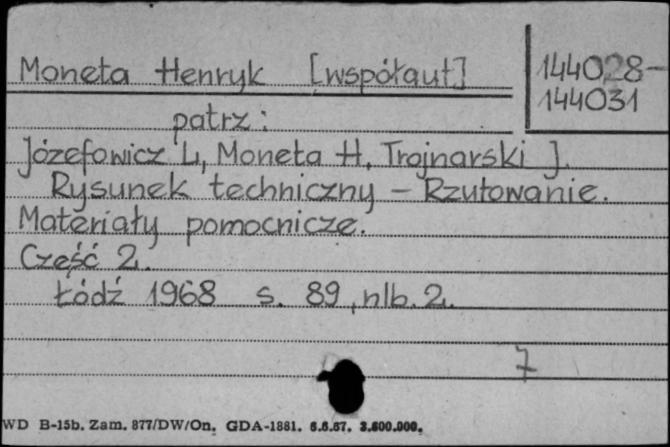 Moneta Henryk [współaut]
144028-
144031
patrz:
Józefowicz L, Moneta H, Trojnarski J.
Rysunek techniczny - Rzutowanie.
Materiały pomocnicze.
Część 2.
Łódź 1968 s. 89, nlb. 2.
7
WD B-15b. Zam. 877/DW/On. GDA-1881. 6.6.67. 3.600.000.